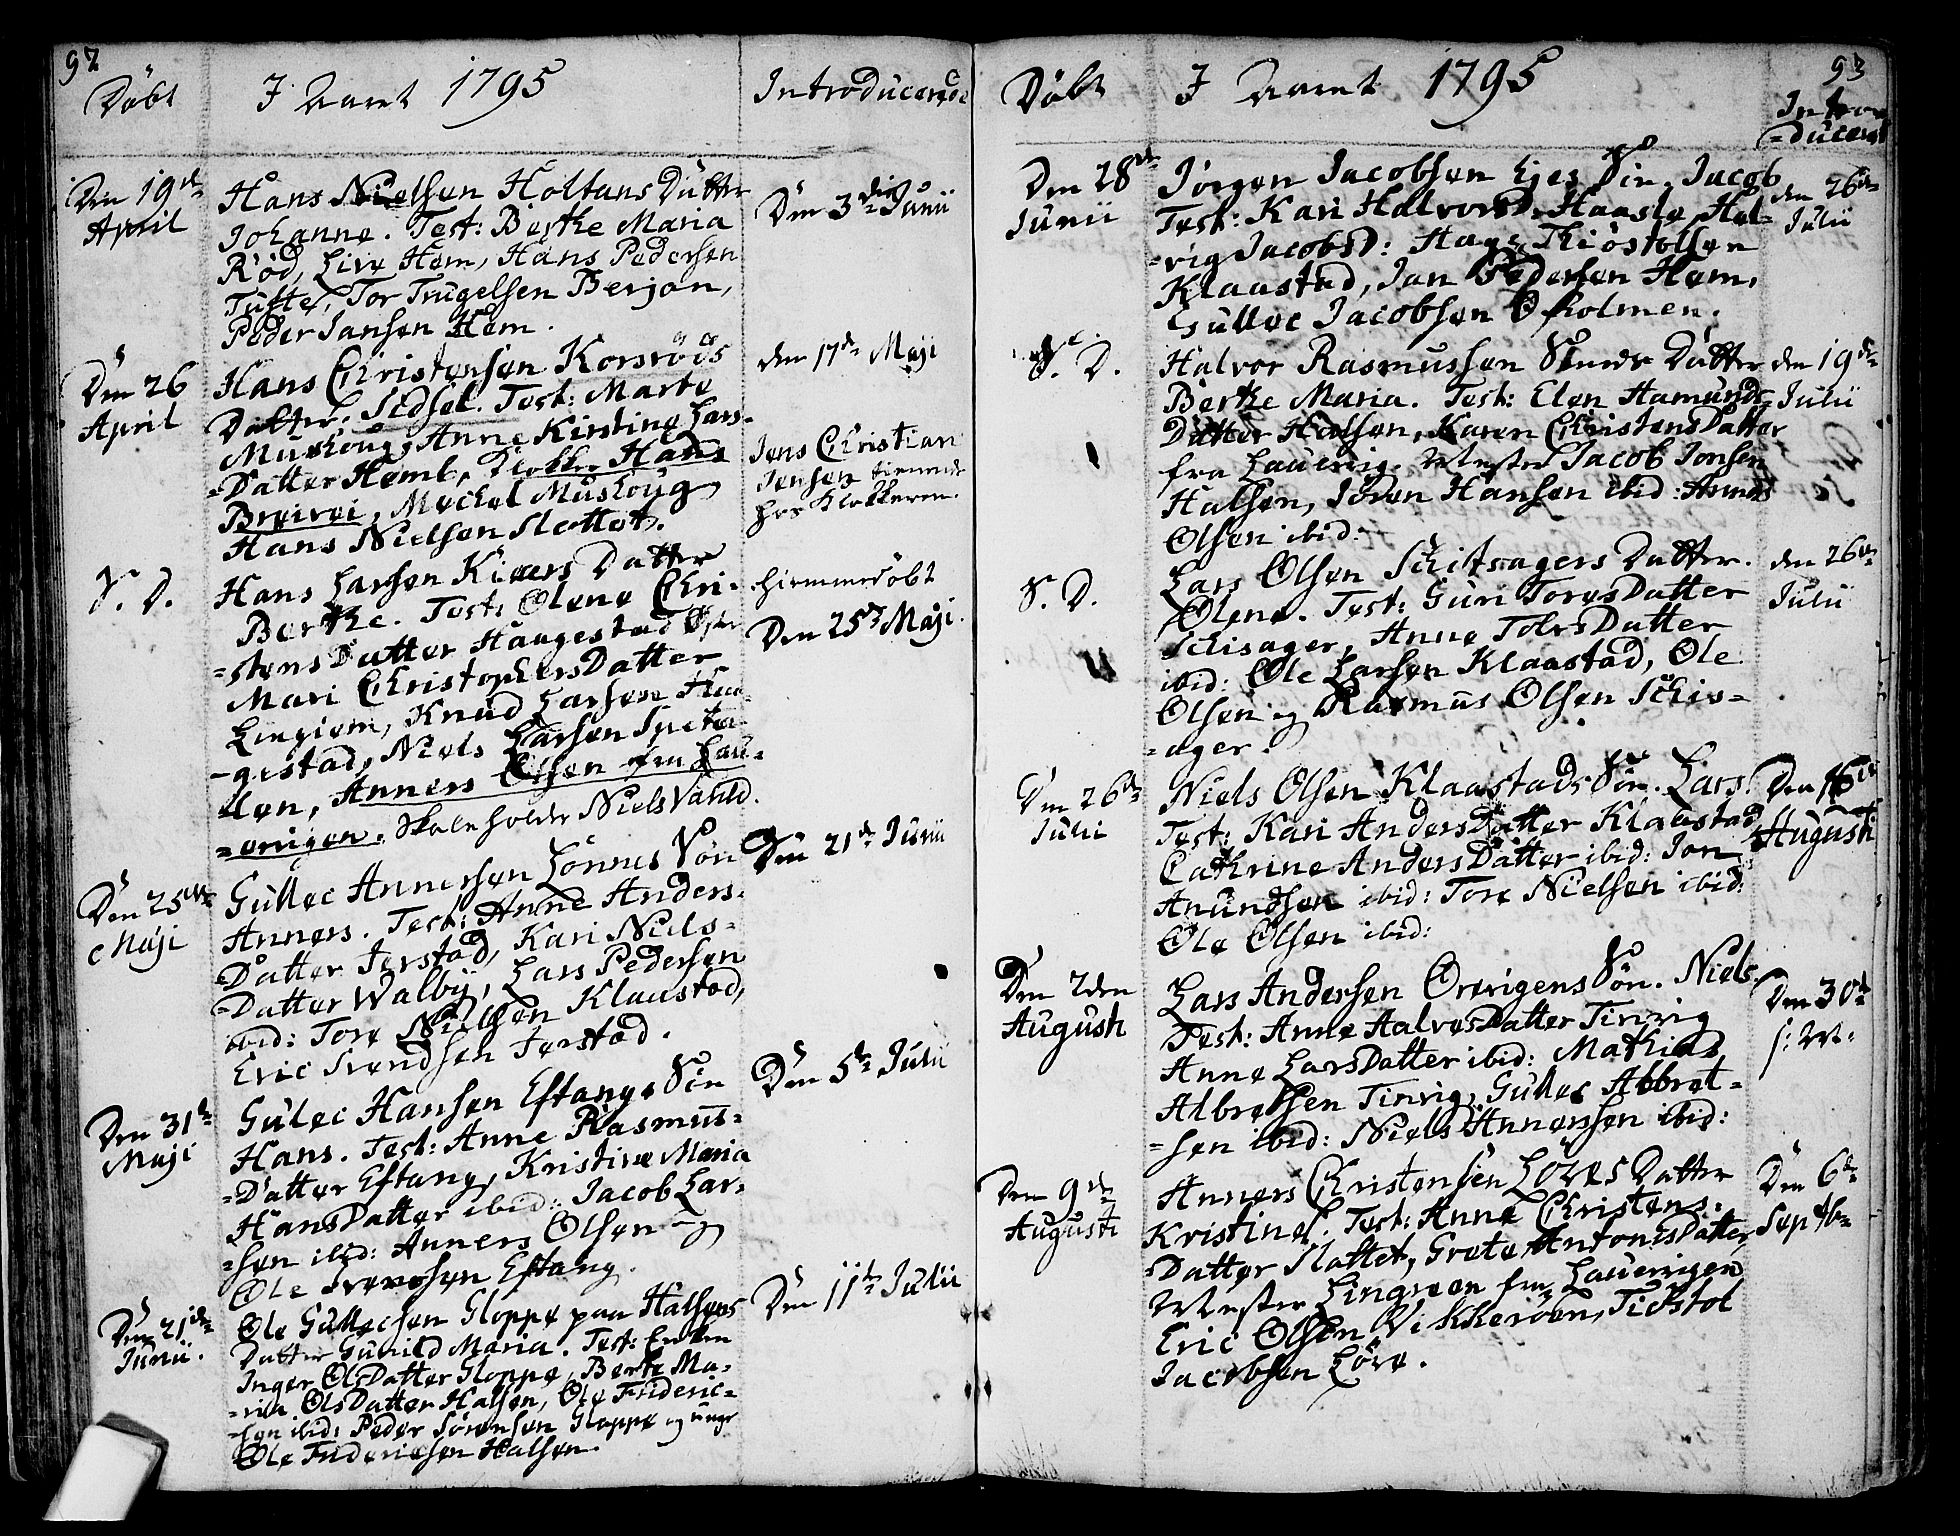 92
Döbt
I Aaret 1795
Introducerede
Den 19de
April
Hans Nielsen Holtans Datter
Johanne. Test: Berthe Maria
Röd, Live Hem, Hans Pedersen
Tufte, Tor Trugelsen Berjan,
Peder Jansen Hem.
Den 3die Junii
Den 26
April
Hans Christensen Korsröds
Datter. Sidsel. Test: Marte
Muskoug, Anne Kirstine Lars-
=Datter Hemb, Klokker Hans
Breivei, Mechel Muskoug
Hans Nielsen Slottet.
den 17de Maji
Jens Christian
Jensen tienende
hos Klokkeren.
S. D.
Hans Larsen Kiærs Datter
Berthe. Test: Olene Chri-
=stens Datter Haugestad
Mari Christophers Datter
Lingiem, Knud Larsen Hau-
-gestad, Niels Larsen
Anners Olsen fra Lau-
=errigen. Skoleholder Niels Vauld.
Hiemmedöbt
Den 25 Maji.
Den 25de
Maji
Gullec Annersen Lönnes Sön
Anners. Test: Anne Anders-
=Datter Jerstad, Kari Niels-
=Datter Walby, Lars Pedersen
ibid: Tore Nielsen Klaastad,
Eric Svendsen Jerstad.
Den 21de Junii
Den 31te
Maji
Gulec Hansen Eftangs Sön
Hans. Test: Anne Rasmus-
=Datter Eftang, Kristine Maria
Hans Datter ibid: Jacob Lar-
=sen ibid: Anners Olsen og
Ole Eftang.
Den 5te Julii
Den 21de
Junii.
Ole Gullechsen Gloppe paa Halsens
Datter Gunild Maria. Test: Enken
Inger Ols Datter Gloppe, Berte Ma-
-ria Ols Datter Halsen, Ole Frideric-
-sen ibid: Peder Sörensen Gloppe og unge
Ole Fridericsen Halsen.
Den 11te Julii
93
Döbt
I Aaret 1795
Intro
=ducered
Den 28de
Junii
Jörgen Jacobsen Ejes Sön. Jacob
Test: Kari Halvorsd. Haasle, Hel-
=vig Jacobsd: Hage, Thiöstolsen
Klaastad, Jan Pedersen Hem,
Gullec Jacobsen Ö Holmen.
den 26de
Julii
S. D.
Halvor Rasmussen Datter
Berthe Maria. Test: Elen Hamunds
Datter Halsen, Karen Christens Datter
fra Lauervig. Mester Jacob Jonsen
Halsen, Sören Hansen ibid: Anners
Olsen ibid:
den 19de
Julii
S. D.
Lars Olsen Schitsagers Datter.
Olene. Test: Guri Tores Datter
Schisager, Anne Tolvs Datter
ibid: Ole Larsen Klaastad, Ole
Olsen og Rasmus Olsen Schis-
=ager.
den 26de
Julii
Den 26de
Julii
Niels Olsen Klaastads Sön. Lars.
Test: Kari Anders Datter Klaastad
Cathrine Anders Datter ibid: Jon
Anundsen ibid: Tore Nielsen ibid:
Ole Olsen ibid:
Den 16de
Augusti
Den 2den
Augusti
Lars Andersen Örerigens Sön. Niels
Test: Anne Aalves Datter Tinvig
Anne Lars Datter ibid: Mathias
Albretsen Tinvig, Gullec Abbret-
=sen ibid: Niels Annersen ibid:
Den 30te
s: M:
Den 9de
Augusti
Anners Christensen Löves Datter
Kristine. Test: Anne Christens-
=Datter Slottet, Grete Antonis Datter
Mester Lingreen fra Lauervigen
Eric Olsen Vikkeröen, Tiöstol
Jacobsen Löve.
Den 6te
Septb